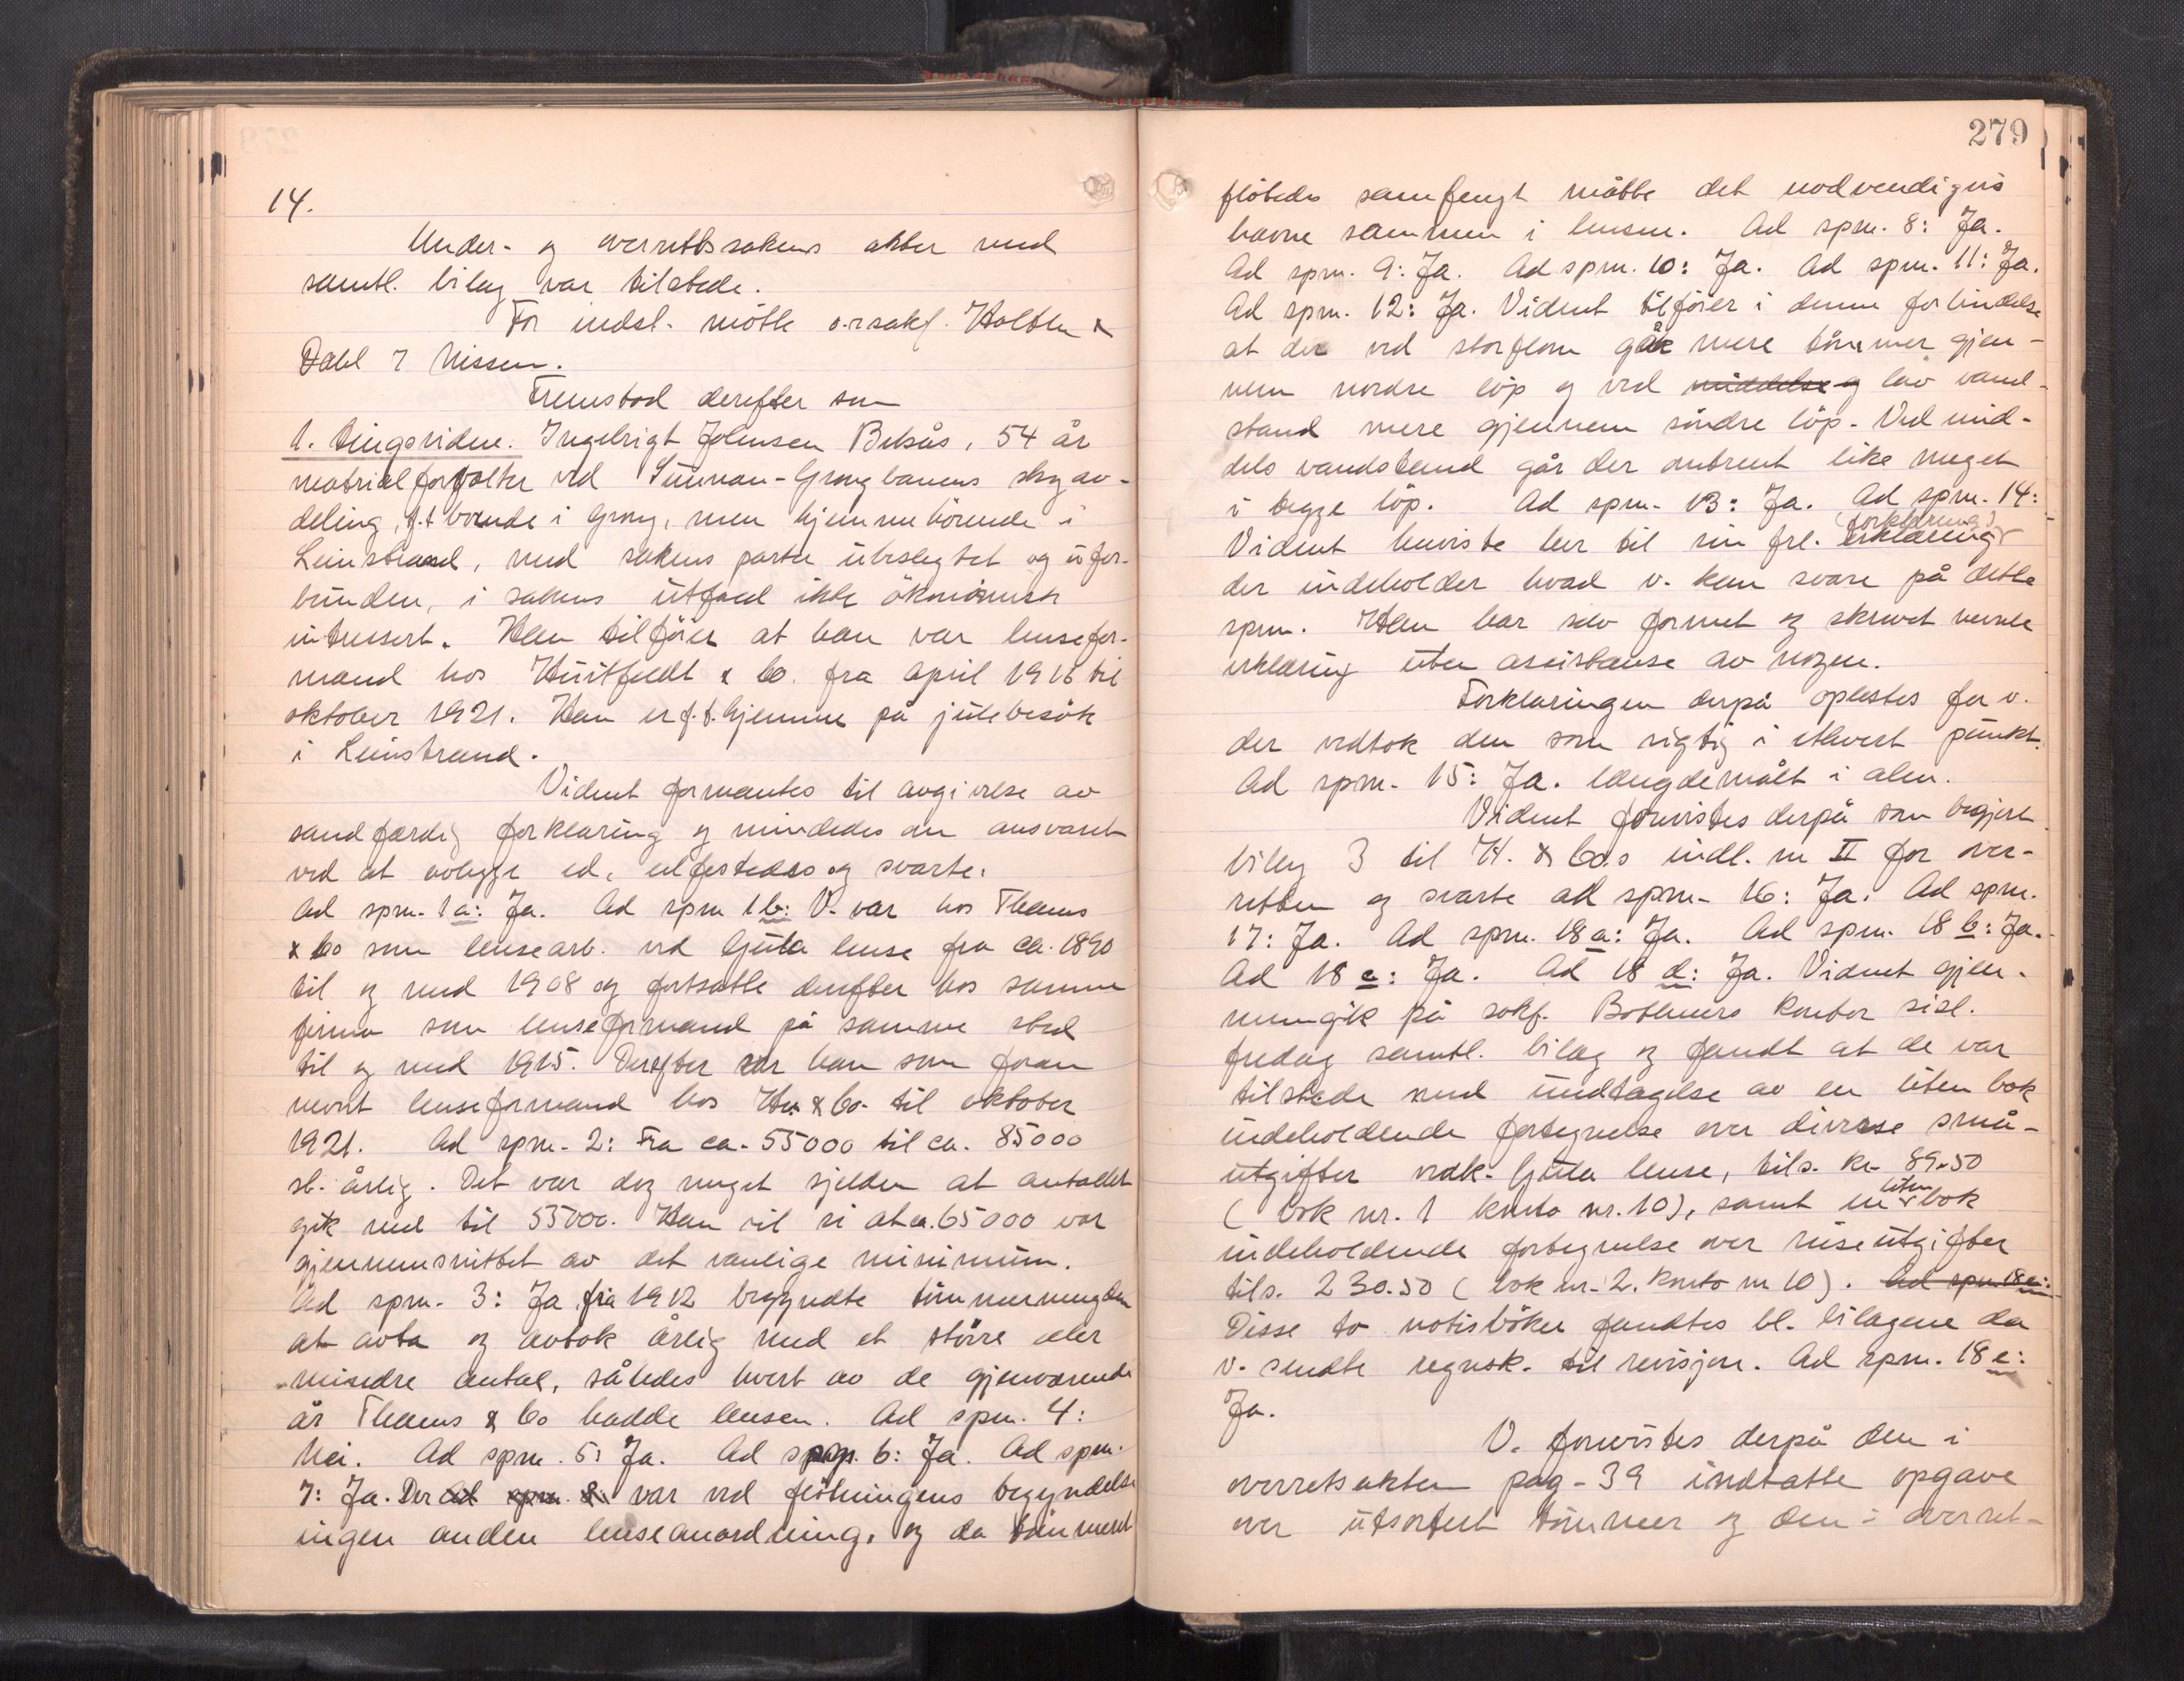 14.
Under- og overretssakens akter med
samtl. bilag var tilstede.
For indst. mötte o.r.sakf. Holtban &
Dahl 7 Nissen.
Fremstod derefter som
1. tingsvidne. Ingebrigt Johnsen Betsås, 54 år
matrialforvalter ved Sunnan-Grongbanens skogav-
deling, f.t. boende i Grong, men hjemmehörende i
Leinstrand, med sakens parter ubeslegtet og ufor-
bunden, i sakens utfald ikke ökonomisk
intressert. Han tilföier at han var lensefor-
mand hos Huitfeldt & Co. fra april 1916 til
oktober 1921. Han er f.t. hjemme på julebesök
i Leinstrand.
Vidnet formantes til avgivelse av
sandfærdig forklaring og mindedes om ansvaret
ved at avlegge ed, edfestedes og svarte:
Ad spm. 1a: Ja. Ad spm 1b: V. var hos Thams
& Co som lensearb. ved Gjula lense fra ca. 1890
til og med 1908 og fortsatte derefter hos samme
firma som lenseformand på samme sted
til og med 1915. Derefter var han som foran
nevnt lenseformand hos Hu. & Co. til oktober
1921. Ad spm. 2: Fra ca. 55000 til ca. 85000
st. årlig. Det var dog meget sjelden at antallet
gik ned til 55000. Han vil si at ca. 65000 var
gjennemsnittet av det vanlige minimum.
Ad spm. 3: Ja, fra 1912 begyndte tömmermengden
at avta og avtok årlig med et större eller
mindre antal, således hvert av de gjenværende
år Thams & Co hadde lensen. Ad spm. 4:
Nei. Ad spm. 5: Ja. Ad spm. 6: Ja. Ad spm.
7: Ja. Der ad spm. 8: var ved flötningens begyndelse
ingen anden lenseanordning, og da tömmeret
279
flötedes samfengt måtte det nødvendigvis
havne sammen i lensen. Ad spm. 8: Ja.
Ad spm. 9: Ja. Ad spm. 10: Ja. Ad spm. 11: Ja.
Ad spm. 12: Ja. Vidnet tilföier i denne forbindelse
at der ved storflom gåk mere tömmer gjen-
nem nordre löp og ved middelse og lav vand-
stand mere gjennem söndre löp. Ved mid-
dels vandstand går der omtrent like meget
i begge löp. Ad spm. 13: Ja. Ad spm. 14:
(forklaring)
Vidnet henviste her til sin frl. erklæring
der indeholder hvad v. kan svare på dette
spm. Han har selv formet og skrevet nevnte
erklæring uten assistanse av nogen.
Forklaringen derpå oplestes for v.
der vedtok den som rigtig i ethvert punkt.
Ad spm. 15: Ja. længdemålt i alen.
Vidnet forevistes derpå som begjert
bilag 3 til H. & Co.s indl. nr II for over-
retten og svarte ad spm. 16: Ja. Ad spm.
17: Ja. Ad spm. 18 a: Ja. Ad spm. 18 b: Ja.
Ad 18 c: Ja. Ad 18 d: Ja. Vidnet gjen-
nemgik på sakf. Bothners kontor sisl.
fredag samtl. bilag og fandt at de var
tilstede med undtagelse av en liten bok
indeholdende fortegnelse over diverse små-
utgifter vedk. Gjula lense, tils. kr. 89.50
(bok nr. 1 konto nr. 10), samt en liten bok
indeholdende fortegnelse over reiseutgifter
tils. 230.50 (bok nr. 2. konto nr 10). Ad spm 18 e:
Disse to notisböker fandtes bl. bilagene da
v. sendte regnsk. til revisjon. Ad spm. 18 e:
Ja.
V. forevistes derpå den i
overretsakten pag. 39 indtatte opgave
over utsortert tömmer og den i overret-